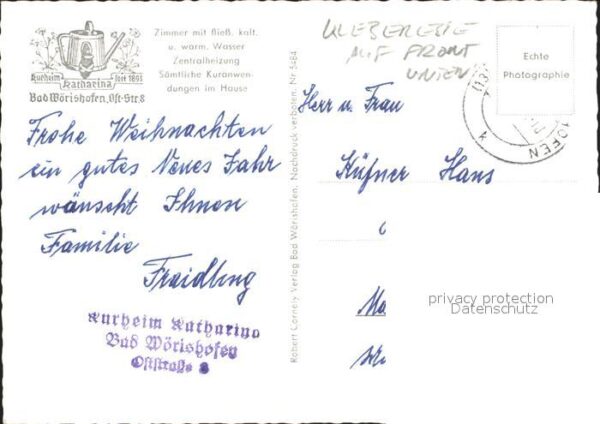 Kurheim seit 1891
Katharina
Bad Wörishofen, Ost-Str 8
Zimmer mit fließ. kalt.
u. warm. Wasser
Zentralheizung
Sämtliche Kuranwen-
dungen im Hause
Frohe Weihnachten
ein gutes Neues Jahr
wünscht Ihnen
Familie
Fraidling
Kurheim Katharina
Bad Wörishofen
Oststraße 8
Robert Cornely Verlag Bad Wörishofen. Nachdruck verboten. Nr. 5484
KLEBEREBIE
AUF FRONT
UNTEN
Echte
Photographie
(13
HOFEN
k
Herr u. Frau
Küfner Hans
privacy protection
Datenschutz